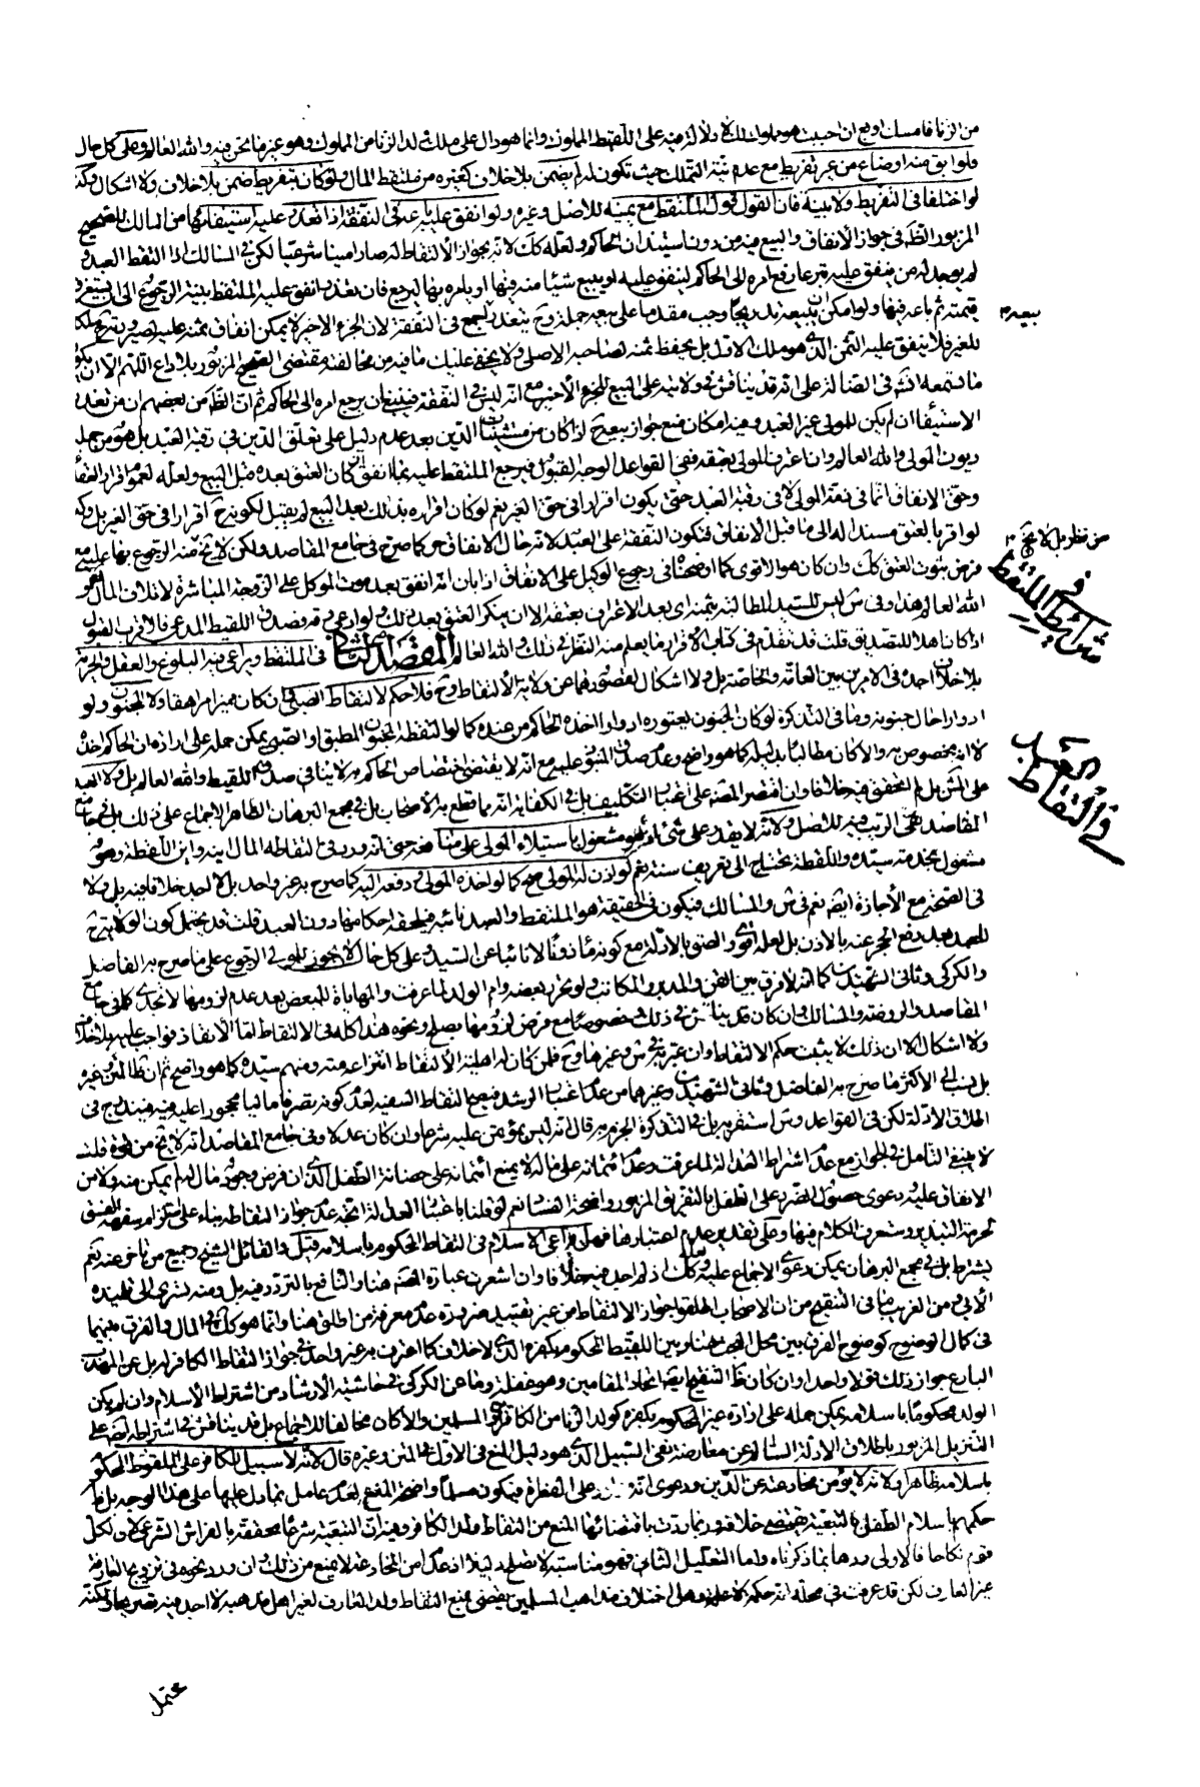 من الزنا فامسك او بع ان احببت هو مملوك لك لا دلالة فيه على اللقيط المملوك وانما هو دال على ملك ولد الزنا من المملوك وهو غير ما نحن فيه والله العالم وعلى كل حال
فلو ابق منه او ضاع من غير تفريط مع عدم نية التملك حيث تكون له لم يضمن بلا خلاف كغيره من ملتقط المال ولو كان بتفريط ضمن بلا خلاف ولا اشكال وكذا
لو اختلفا في التفريط ولا بينة فان القول قول الملتقط مع يمينه للاصل وغيره ولو انفق عليه باعه في النفقة اذا تعذر عليه استيفاؤها من المالك للصحيح
المزبور الظاهر في جواز الانفاق والبيع فيه من دون استيذان الحاكم ولعله كك لانه بجواز الالتقاط له صار امينا شرعيا لكن في المسالك اذا التقط العبد و
لم يوجد له من ينفق عليه تبرعا رفع امره الى الحاكم لينفق عليه او يبيع شيئا منه فيها او يامره بها ليرجع فان تعذر انفق عليه الملتقط بنية الرجوع الى ان يستغرق
قيمته ثم باعه فيها ولو امكن ان يبيعه تدريجا وجب مقدما على بيعه جملة وح يتعذر بيعه اجمع في النفقة لان الجزء الاخير لا يمكن انفاق ثمنه عليه لصيرورته ح ملكا
للغير فلا ينفق عليه الثمن الذي هو ملك الاول بل يحفظ ثمنه لصاحبه الاصلي ولا يخفى عليك ما فيه من مخالفته مقتضى الصحيح المزبور بلا داع اللهم الا ان يكون
ما تسمعه انش في الضالة على انه قد يناقش في ولايته على البيع للجزء الاخير مع انه ليس في النفقة فينبغي ان يرجع امره الى الحاكم ثم ان الظاهر من بعضهم ان من تعذر
الاستيفاء ان لم يكن للمولى غير العبد وفيه امكان منع جواز بيعه ح اذا كان من مستثنيات الدين بعد عدم دليل على تعلق الدين في رقبة العبد بل هو من جملة
ديون المولى والله العالم وان اعترف المولى بعتقه ففي القواعد الوجه القبول فيرجع الملتقط عليه بما انفق ان كان العتق بعده قبل البيع ولعله لعموم اقرار العقلاء
وحق الانفاق انما في ذمة المولى لا في رقبة العبد حتى يكون اقرارا في حق الغير نعم لو كان اقراره بذلك بعد البيع لم يقبل لكونه ح اقرارا في حق الغير بل وكذا
لو اقر بالعتق مسندا له الى ما قبل الانفاق فتكون النفقة على العبد لانه حال الانفاق حر كما صرح في جامع المقاصد ولكن لا يخ من الرجوع بها عليه مع
فرض ثبوت العتق كك وان كان هو الاقوى كما اوضحناه في رجوع الوكيل على الانفاق اذا بان انه انفق بعد موت الموكل على الزوجة المباشرة لاتلاف المال هو
الله العالم هذا وفي ش ليس للسيد المطالبة بثمنه اي بعد الاعتراف بعتقه الا ان ينكر العتق بعد ذلك ولو ادعى رقه فصدقه اللقيط المدعي فالاقرب القبول
اذا كان اهلا للتصديق قلت قد تقدم في كتاب الاقرار ما يعلم منه النظر في ذلك والله العالم المقصد الثاني في الملتقط ويراعى فيه البلوغ والعقل والحرية
بلا خلاف اجده في الامرين بين العامة والخاصة بل ولا اشكال لقصورهما عن ولاية الالتقاط وح فلا حكم لالتقاط الصبي وان كان مميزا مراهقا ولا المجنون ولو
ادوارا حال جنونه وما في التذكرة لو كان الجنون يعتوره ادوارا اخذه الحاكم من عنده كما لو التقطه المجنون المطبق او الصبي يمكن حمله على ارادة ان الحاكم اخذه
لا انه مخصوص به والا كان مطالبا بدليله كما هو واضح وعدم صدق المنبوذ عليه مع انه لا يقتضي اختصاص الحاكم به لا ينافي صدق اللقيط والله العالم بل ولا العبد
على المش بل لم اتحقق فيه خلافا وان اقتصر المصنف على اعتبار التكليف بل في الكفاية انه مما قطع به الاصحاب بل في مجمع البرهان الظاهر الاجماع على ذلك بل في جامع
المقاصد نفي الريب فيه للاصل ولانه لا يقدر على شئ او هو مشغول باستيلاء المولى على منافعه حتى انه ورد في التقاطه المال اينه واين اللقطة وهو
مشغول بخدمة سيده واللقطة يحتاج الى تعريف سنة نعم لو اذن له المولى صح كما لو اخذه المولى ودفعه اليه كما صرح به غير واحد بل لا اجد خلافا فيه بل ولا
في الصحة مع الاجازة ايضا نعم في ش والمسالك فيكون في الحقيقة هو الملتقط والعبد نائبه فيلحقه احكامها دون العبد قلت قد يحتمل كون الولاية ح
للعبد بعد رفع الحجر عنه بالاذن بل لعله اقوى والصق بالادلة مع كونه ماذونا لا نائبا عن السيد وعلى كل حال لا يجوز للمولى الرجوع على ما صرح به الفاضل
والكركي وثاني الشهيدين كما انه لا فرق بين القن والمدبر والمكاتب ولو تحرر بعضه وام الولد لما عرفت والمهاياة للمبعض بعد عدم لزومها لا تجدي كما في جامع
المقاصد والروضة والمسالك وان كان قد يناقش في ذلك خصوصا مع فرض لزومها بصلح ونحوه هذا كله في الالتقاط اما الانقاذ فواجب عليه بلا خلاف
ولا اشكال الا ان ذلك لا يثبت حكم الالتقاط وان عبر به في ش وغيرها وح فلمن كان له اهلية الالتقاط انتزاعه منه ومنهم سيده كما هو واضح ثم ان ظ المتن وغيره
بل نسب الى الاكثر ما صرح به الفاضل وثاني الشهيدين وغيرهما من عدم اعتبار الرشد فيصح التقاط السفيه لعدم كونه تصرفا ماليا محجورا عليه فيه فيندرج في
اطلاق الادلة لكن في القواعد وس استقر به بل في التذكرة الجزم به قال انه ليس بمؤتمن عليه شرعا وان كان عدلا وفي جامع المقاصد انه لا يخ من قوة قلت
لا ينبغي التامل في الجواز مع عدم اشتراط العدالة لما عرفت وعدم ائتمانه على ماله لا يمنع ائتمانه على حضانة الطفل الذي ان فرض وجود مال له لم يمكن منه ولا من
الانفاق عليه ودعوى حصول الضرر على الطفل بالتفريق المزبور واضحة الفساد نعم لو قلنا باعتبار العدالة اتجه عدم جواز التقاطه بناء على استلزام سفهه الفسق
لحرمة التبذير وستعرف الكلام فيها وعلى تقدير عدم اعتبارها فهل يراعى الاسلام في التقاط المحكوم باسلامه قيل والقائل الشيخ وجميع من تاخر عنه نعم
يشترط بل في مجمع البرهان يمكن دعوى الاجماع عليه وهو كك اذ لم اجد فيه خلافا وان اشعرت عبارة المصنف هنا والنافع بالتردد فيه بل ومنه يسري الى تلميذه
الآبي ومن الغريب ما في التنقيح من ان الاصحاب اطلقوا جواز الالتقاط من غير تقييد ضرورة عدم معرفة من اطلق هنا وانما هو كك في المال والفرق بينهما
في كمال الوضوح كوضوح الفرق بين محل البحث هنا وبين اللقيط المحكوم بكفره الذي لا خلاف كما اعترف به غير واحد في جواز التقاط الكافر له بل عن المهذب
البارع جواز ذلك قولا واحدا وان كان ظ التنقيح ايضا اتحاد المقامين وهو غفلة وما عن الكركي في حاشية الارشاد من اشتراط الاسلام وان لم يكن
الولد محكوما باسلامه يمكن حمله على ارادة غير المحكوم بكفره كولد الزنا من الكافر او المسلمين والا كان مخالفا للاجماع بل قد يناقش في اشتراطه ايضا على
التنزيل المزبور باطلاق الادلة السالم عن معارضة نفي السبيل الذي هو دليل المنع في الاول في المتن وغيره قال لانه لا سبيل للكافر على الملقوط المحكوم
باسلامه ظاهرا ولانه لا يؤمن مخادعته عن الدين ودعوى انه على الفطرة فيكون مسلما واضحة المنع لعدم عامل بما دل عليها على هذا الوجه بل ظ
حكمهم باسلام الطفل بالتبعية يقتضي خلافه وربما ردت باقتضائها المنع من التقاط ولد الكافر وفيه ان التبعية شرعا محققة بالفراش الشرعي لان لكل
قوم نكاحا فالاولى ردها بما ذكرناه واما التعليل الثاني فهو مناسبة لا تصلح دليلا اذ عدم امن المخادعة لا يمنع من ذلك وان ورد نحوه في تزويج العارفة
غير العارف لكن قد عرفت في محله انه حكمة لا علة وهل اختلاف مذاهب المسلمين يقتضي بمنع التقاط ولد العارف لغير اهل مذهبه لا اجد فيه تصريحا ولكنه
بيعه
من نظر بل لا يخ
في شرائط الملتقط
في التقاط العبد
محتمل